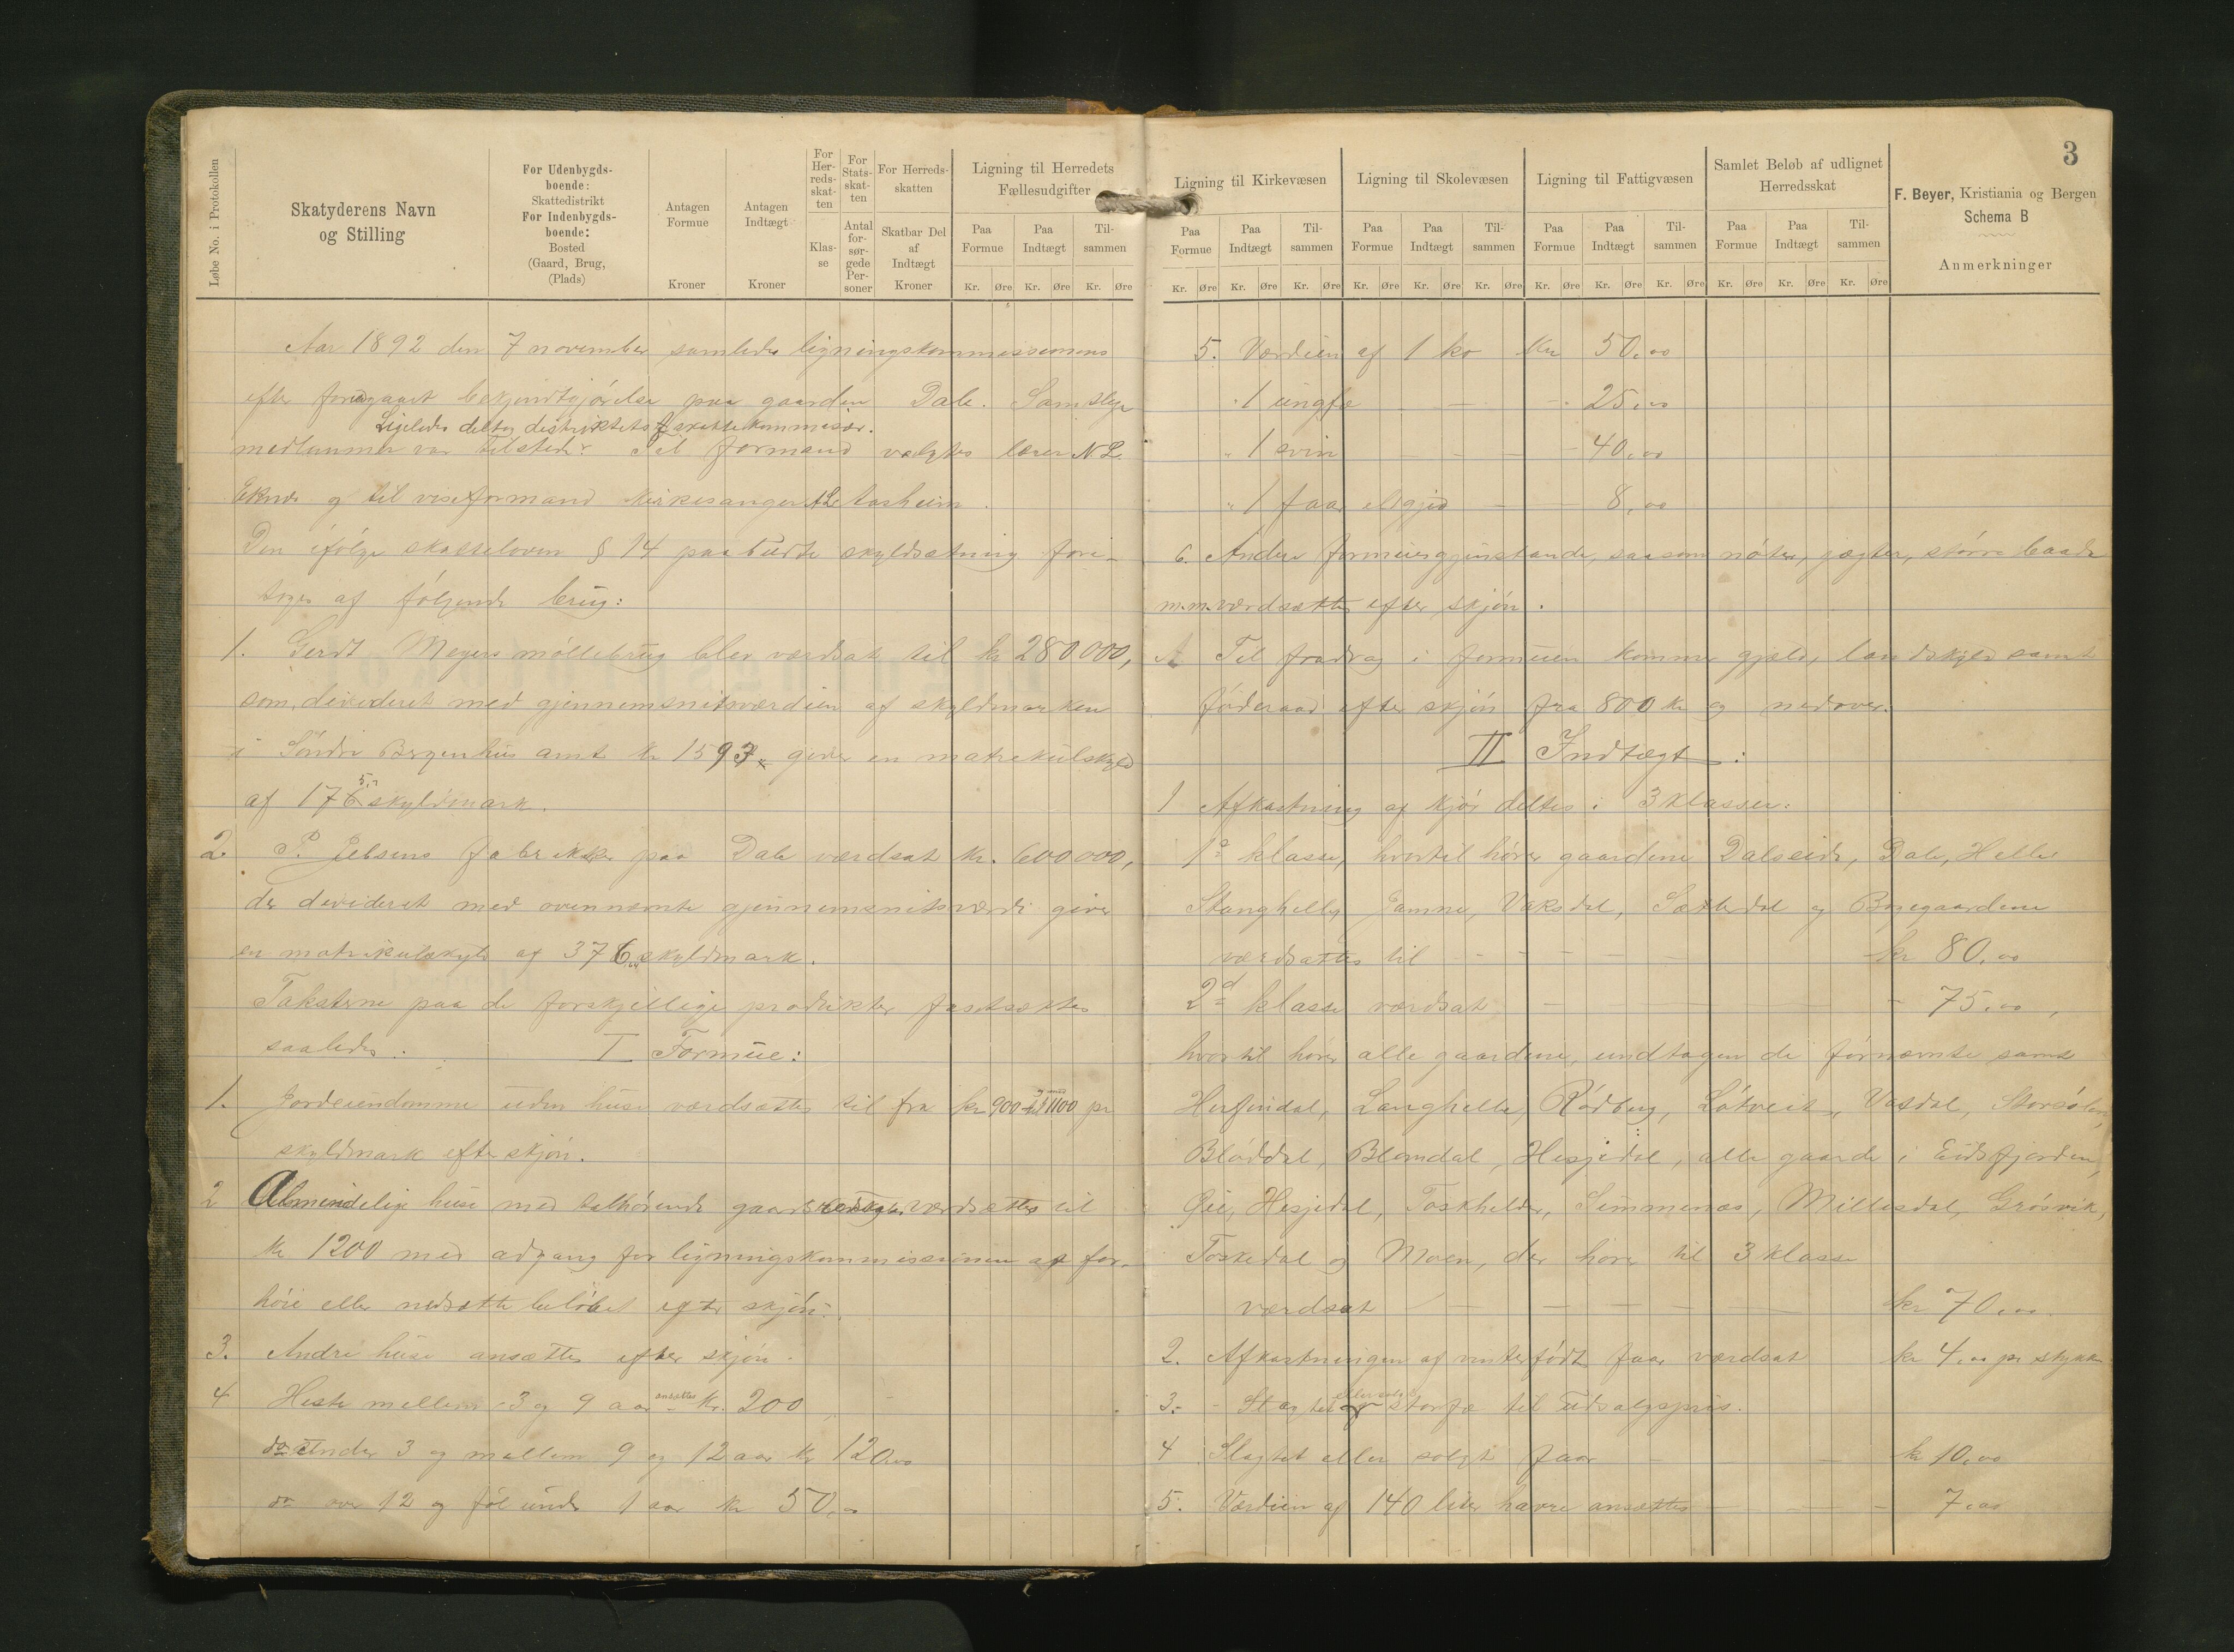 3
Løbe No. i Protokollen
Skatyderens Navn
og Stilling
For Udenbygds-
boende:
Skattedistrikt
For Indenbygds-
boende:
Bosted
(Gaard, Brug,
(Plads)
Antagen
Formue
Kroner
Antagen
Indtægt
Kroner
For
Her-
reds-
skat-
ten
Klas-
se
For
Stats-
skat-
ten
Antal
for-
sør-
gede
Per-
soner
For Herreds-
skatten
Skatbar Del
af
Indtægt
Kroner
Ligning til Herredets
Fællesudgifter
Paa Formue Paa Indtægt Til-sammen
Kr. Øre Kr. Øre Kr. Øre
Ligning til Kirkevæsen
Paa Formue Paa Indtægt Til-sammen
Kr. Øre Kr. Øre Kr. Øre
Ligning til Skolevæsen
Paa Formue Paa Indtægt Til-sammen
Kr. Øre Kr. Øre Kr. Øre
Ligning til Fattigvæsen
Paa Formue Paa Indtægt Til-sammen
Kr. Øre Kr. Øre Kr. Øre
Samlet Beløb af udlignet
Herredsskat
Paa Formue Paa Indtægt Til-sammen
Kr. Øre Kr. Øre Kr. Øre
F. Beyer, Kristiania og Bergen
Schema B
Anmerkninger
Aar 1892 den 7 november samledes ligningskommissionens
efter foregaaet bekjendtgjørelse paa gaarden Dale. Samtlige
Ligeledes deltog distriktets skattekommisær.
medlemmer var tilstede. Til formand valgtes lærer N L.
Eknes og til viseformand kirkesanger A L Aasheim.
Den ifølge skatteloven § 14 paabudte skyldsætning fore-
toges af følgende brug:
1. Gerdt Meyers møllebrug blev værdsat til kr 280000,
som, divideret med gjennemsnitsværdien af skyldmarken
i Søndre Bergenhus amt kr 1593, giver en matrikulskyld
af 176 skyldmark.
2. P. Jebsens fabrikker paa Dale værdsat kr. 600000,
der divideret med ovennæmte gjennemsnitsværdi giver
en matrikulskyld af 376 skyldmark.
Taksterne paa de forskjellige produkter fastsættes
saaledes. I Formue:
1. Jordeiendomme uden huse værdsættes til fra kr 900 til 1100 pr
skyldmark efter skjøn.
2 Almindelige huse med tilhørende gaards værdsættes til
kr 1200 med adgang for ligningskommissionen at for-
høie eller nedsætte beløbet efter skjøn.
3. Andre huse ansættes efter skjøn.
4 Heste mellem 3 og 9 aar ansættes kr. 200
do under 3 og mellem 9 og 12 aar kr 120,00
do over 12 og føl under 1 aar kr 50,00
5. Værdien af 1 ko kr 50,00
" 1 ungfæ - - 25,00
" 1 svin - - - - 40,00
" 1 faar el gjed - - 8,00
6. Andre formuesgjenstande, saasom nøter, jægter, større baade
m.m. værdsættes efter skjøn.
A Til fradrag i formuen kommer gjæld, landskyld samt
føderaad efter skjøn fra 800 kr og nedover.
II Indtægt:
1 Afkastning af kjør deltes i 3 klasser:
1ste klasse, hvortil hører gaardene Dalseide, Dale, Helle
Stanghelle, Jamne, Vaksdal, Sætredal og Bogegaardene
værdsættes til - - - - kr 80,00
2d klasse værdsat - - - 75,00,
hvortil hører alle gaardene, undtagen de førnæmte samt
Herfindal, Langhelle, Rødberg, Løtveit, Vasdal,
Bløddal, Blomdal, Hesjedal, alle gaarde i Eidsfjorden,
Øie, Hesjedal, Toskhelder, Simmenæs, Millesdal, Grøsvik,
Toskedal og Moen, der hører til 3 klasse
værdsat - - - - - kr 70,00
2. Afkastningen af vinterfødt faar værdsat kr 4,00 pr stykke
3. - Slagtet eller solgt storfæ til udsalgspris.
4 Slagtet eller solgt faar - - kr 10,00
5. Værdien af 140 liter havre ansættes - - - 7,00